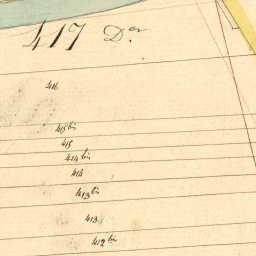 417 Dor
416
415 bis
415
414 bis
414
413 bis
413
412 bis